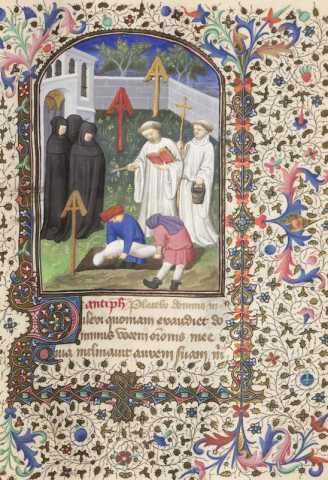 Antiph Placebo domino in
ilexi quoniam exaudiet do
minus vocem orionis mee
Quia inclinavit aurem suam m